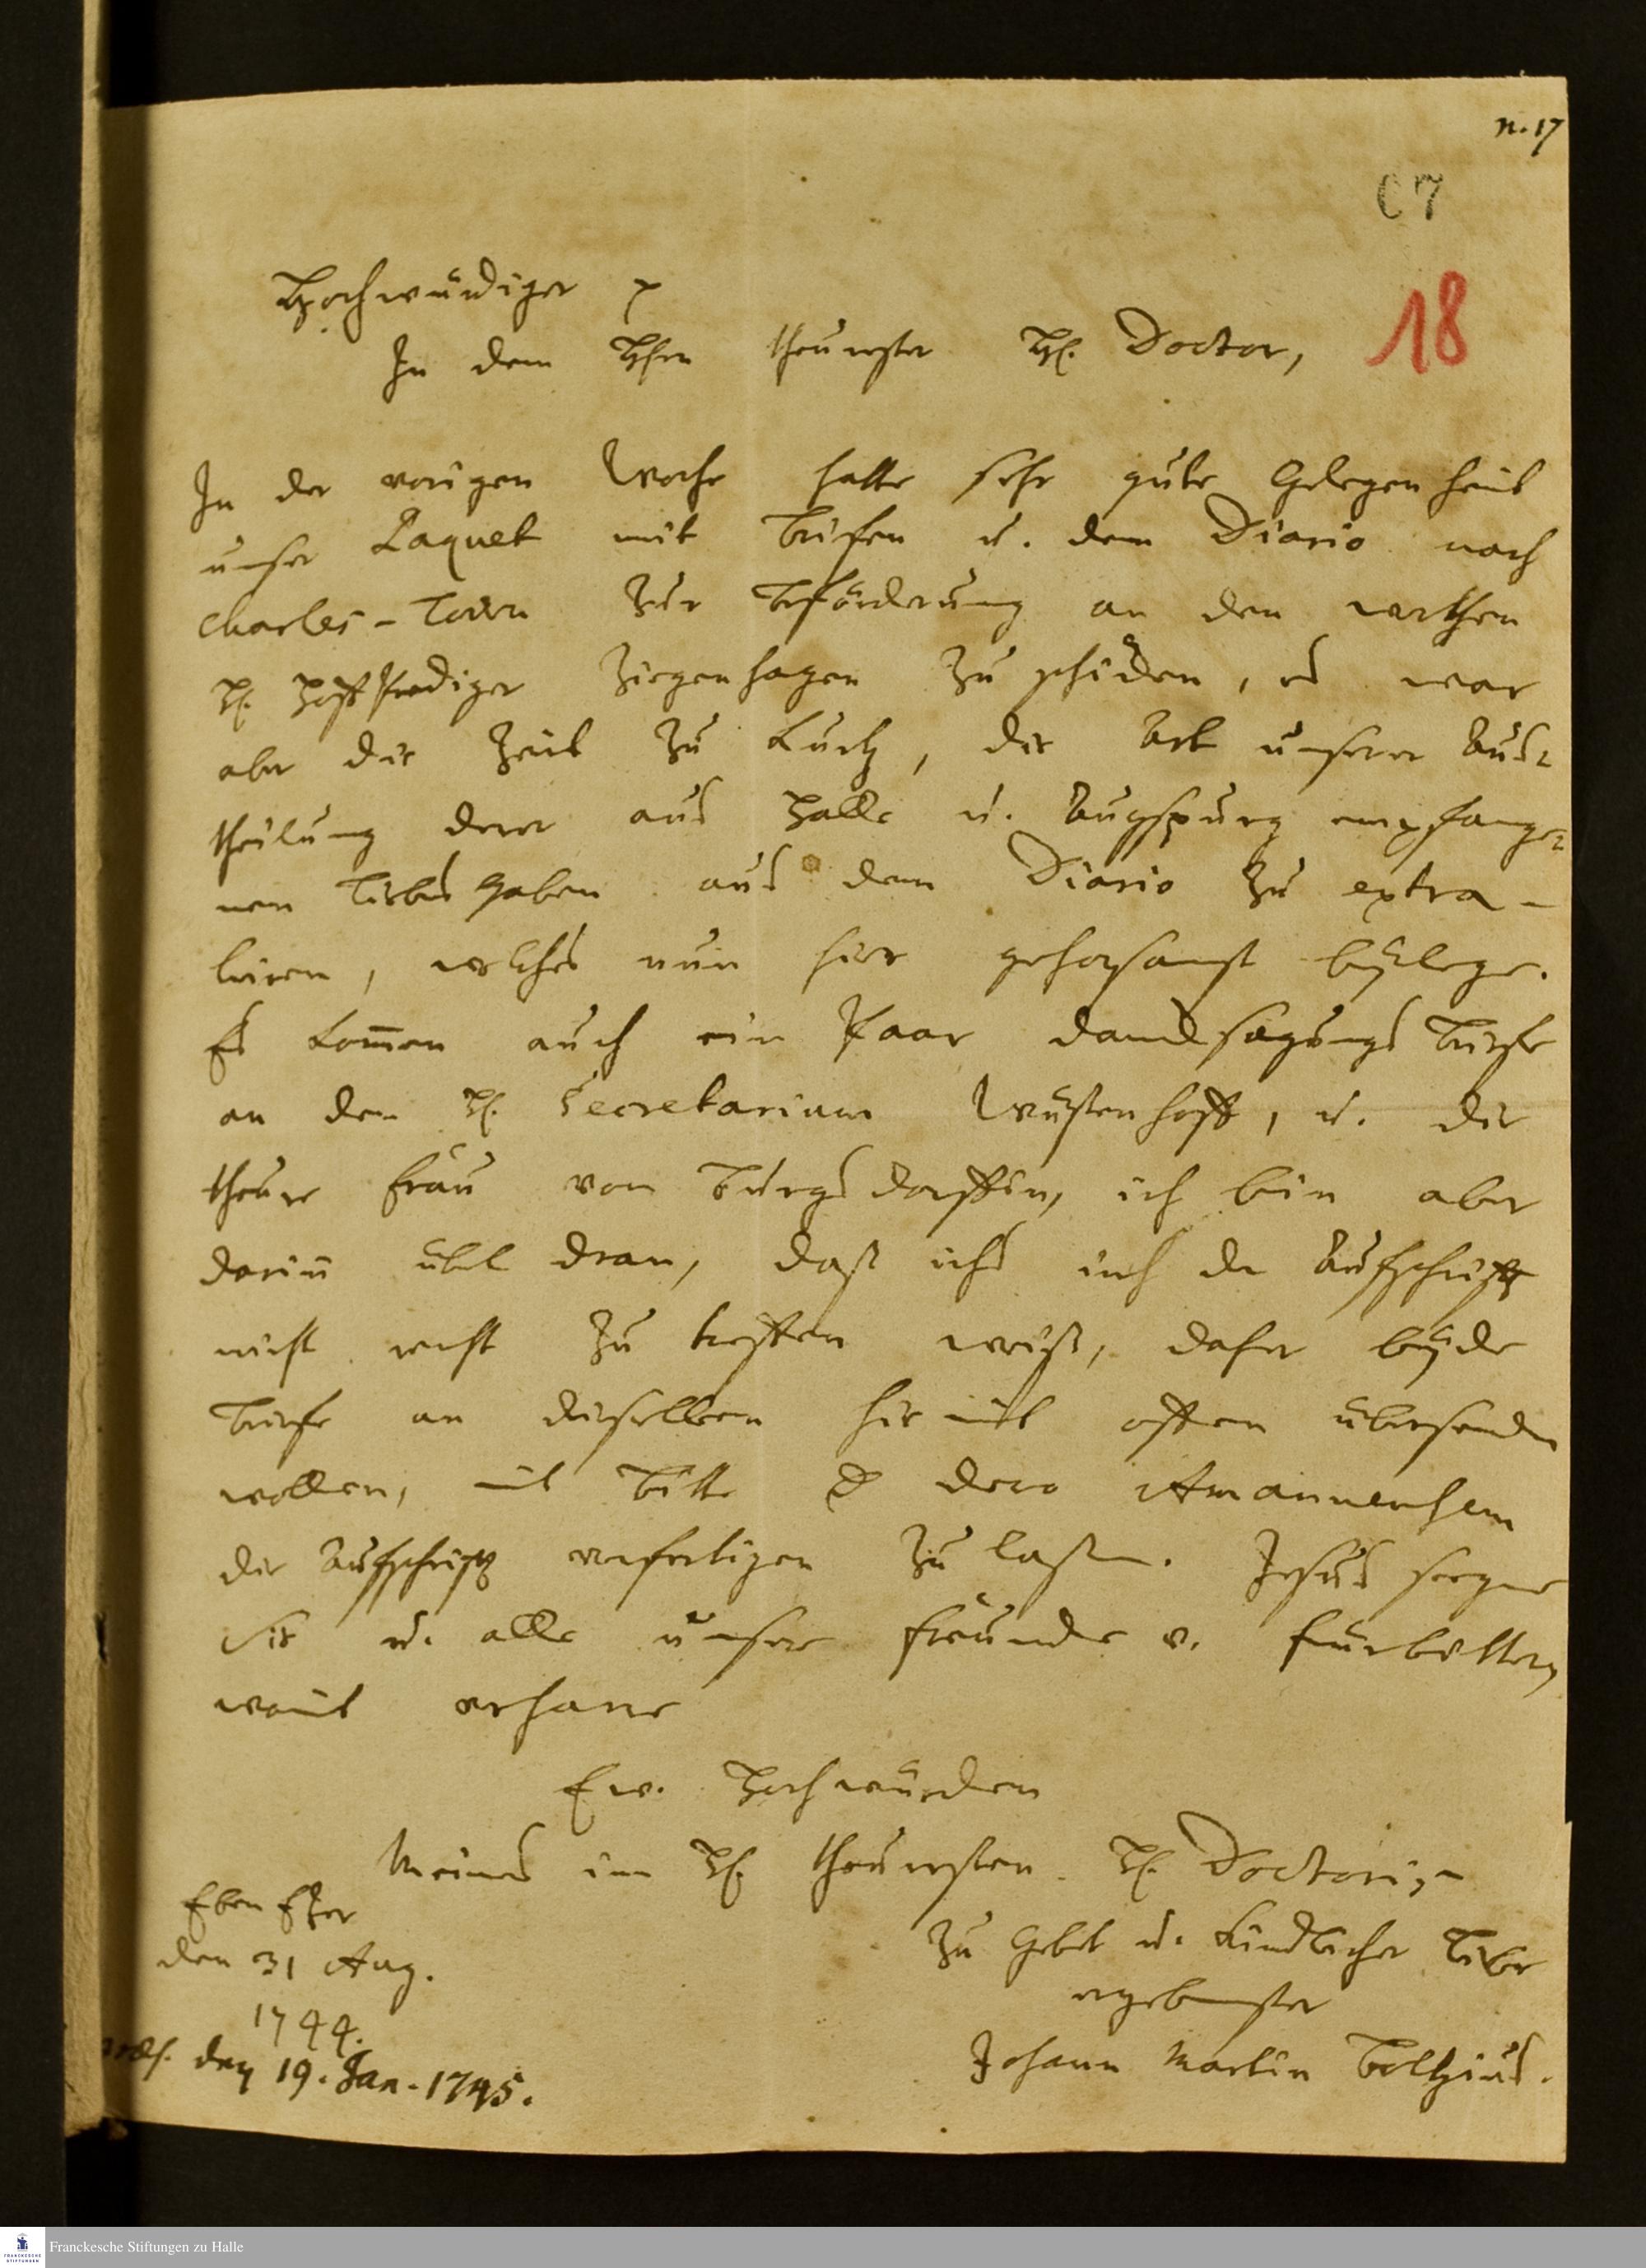 n. 17
67
18
Hochwürdiger p
In dem Hern theurester H. Doctor,
In der vorigen Woche hatte sehr gute Gelegenheit
unser Paquet mit Briefen u. dem Diario nach
Charles-Town zur Beförderung an den werthen
H. Hoffprediger Ziegenhagen zu schicken, es war
aber die Zeit zu kurtz, die Art unserer Aus-
theilung derer aus Halle u. Augspurg empfange-
nen Liebes Gaben aus dem Diario zu extra-
hiren, welches nun hier gehorsamst beylege.
Es kom̄en auch ein Paar dancksagungs Briefe
an den H. Secretarium Wüstenhoff, u. die
theure Frau von Burgsdorffin, ich bin aber
dariñ übel dran, daß ichs mit der Aufschrifft
nicht recht zu treffen weiß, daher beyde
Briefe an dieselben hiemit offen übersenden
wollen, mit Bitte dero Amanuensem
die Aufschrifft verfertigen zu laßen. Jesus seegne
Sie u. alle unsere Freunde u. Fürbitter,
womit verharre
Ew. Hochwürden
Meines im H. theuresten H. Doctoris
Eben Ezer
den 31 Aug.
1744.
zu Gebet u. kindlicher Liebe
ergebenster
Johann Martin Boltzius.
præs. den 19. Jan. 1745.
FRANCKESCHE STIFTUNGEN
Franckesche Stiftungen zu Halle